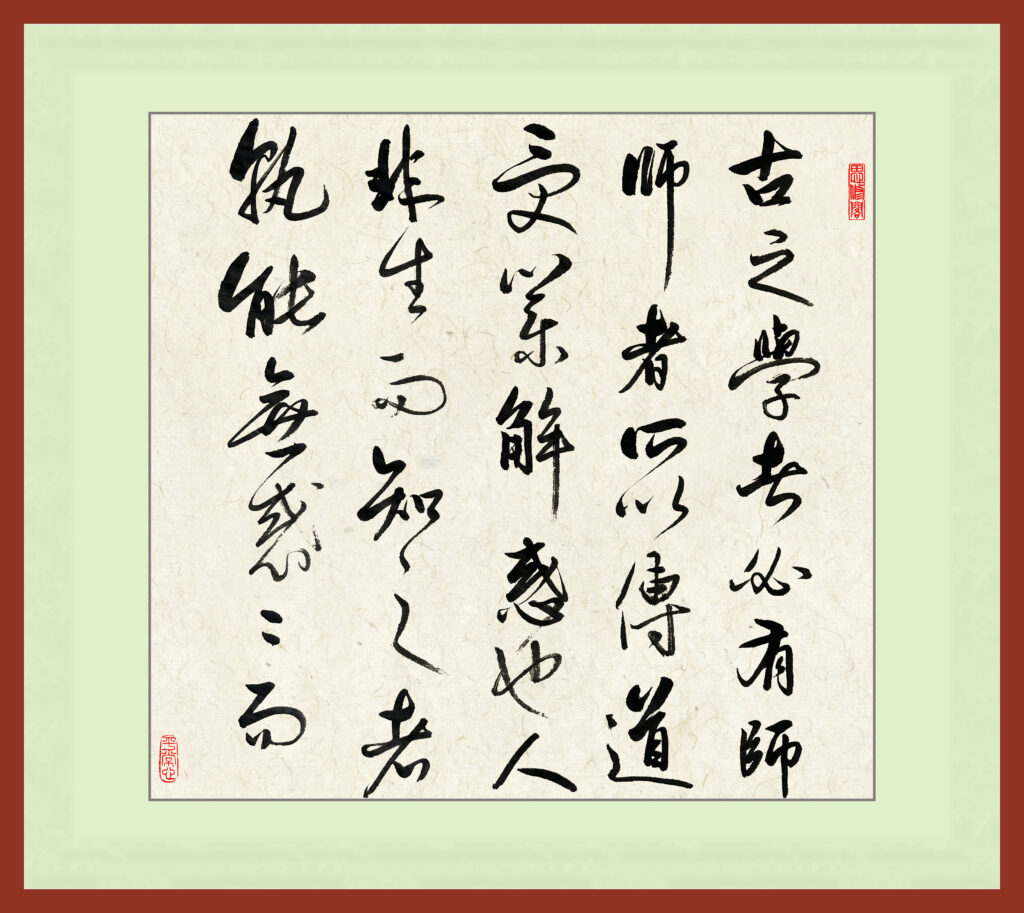 思修閣
古之學者必有師
師者所以傳道
受業解惑也人
非生而知之者
孰能無惑〻而
平常心